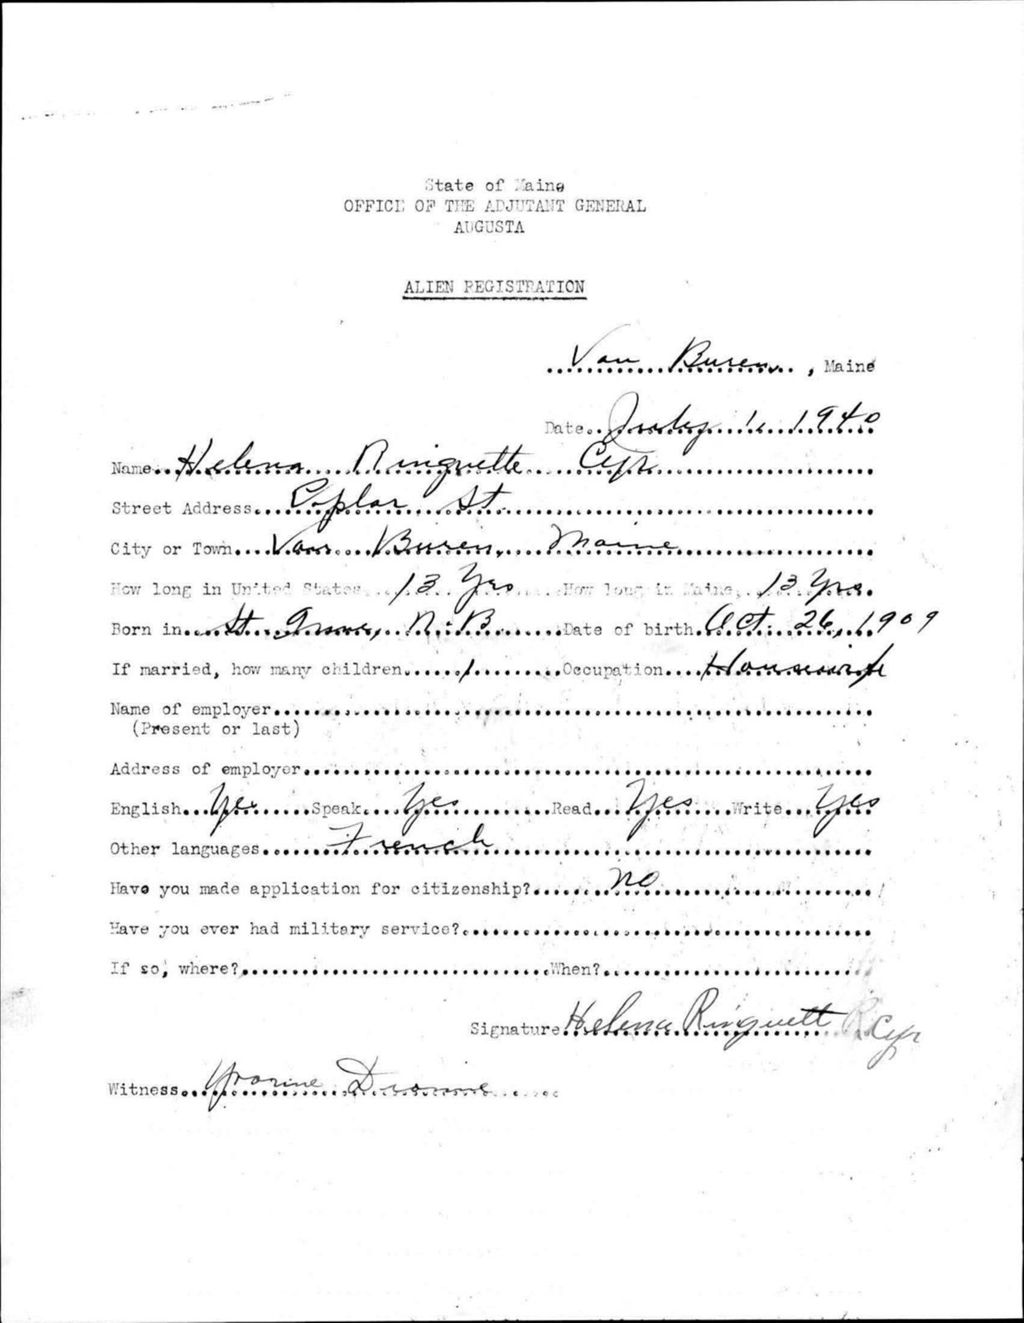 State of Maine
OFFICE OF THE ADJUTANT GENERAL
AUGUSTA
ALIEN REGISTRATION
Van Buren, Maine
Date July 1, 1940
Name Helena Ringuette Cyr
Street Address Poplar St.
City or Town Van Buren, Maine
How long in United States 13 Yrs How long in Maine 13 Yrs.
Born in St. N.B. Date of birth Oct. 26, 1909
If married, how many children 1 Occupation Housewife
Name of employer
(Present or last)
Address of employer
English Yes Speak Yes Read Yes Write Yes
Other languages French
Have you made application for citizenship? no
Have you ever had military service?
If so, where? When?
Signature Helena Ringuett Cyr
Witness